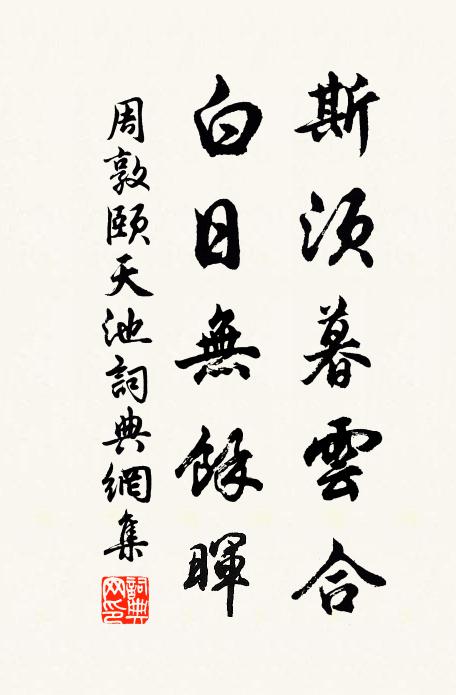 斯須暮雲合
白日無餘暉
周敦頤天池詞典網集
詞典
网印